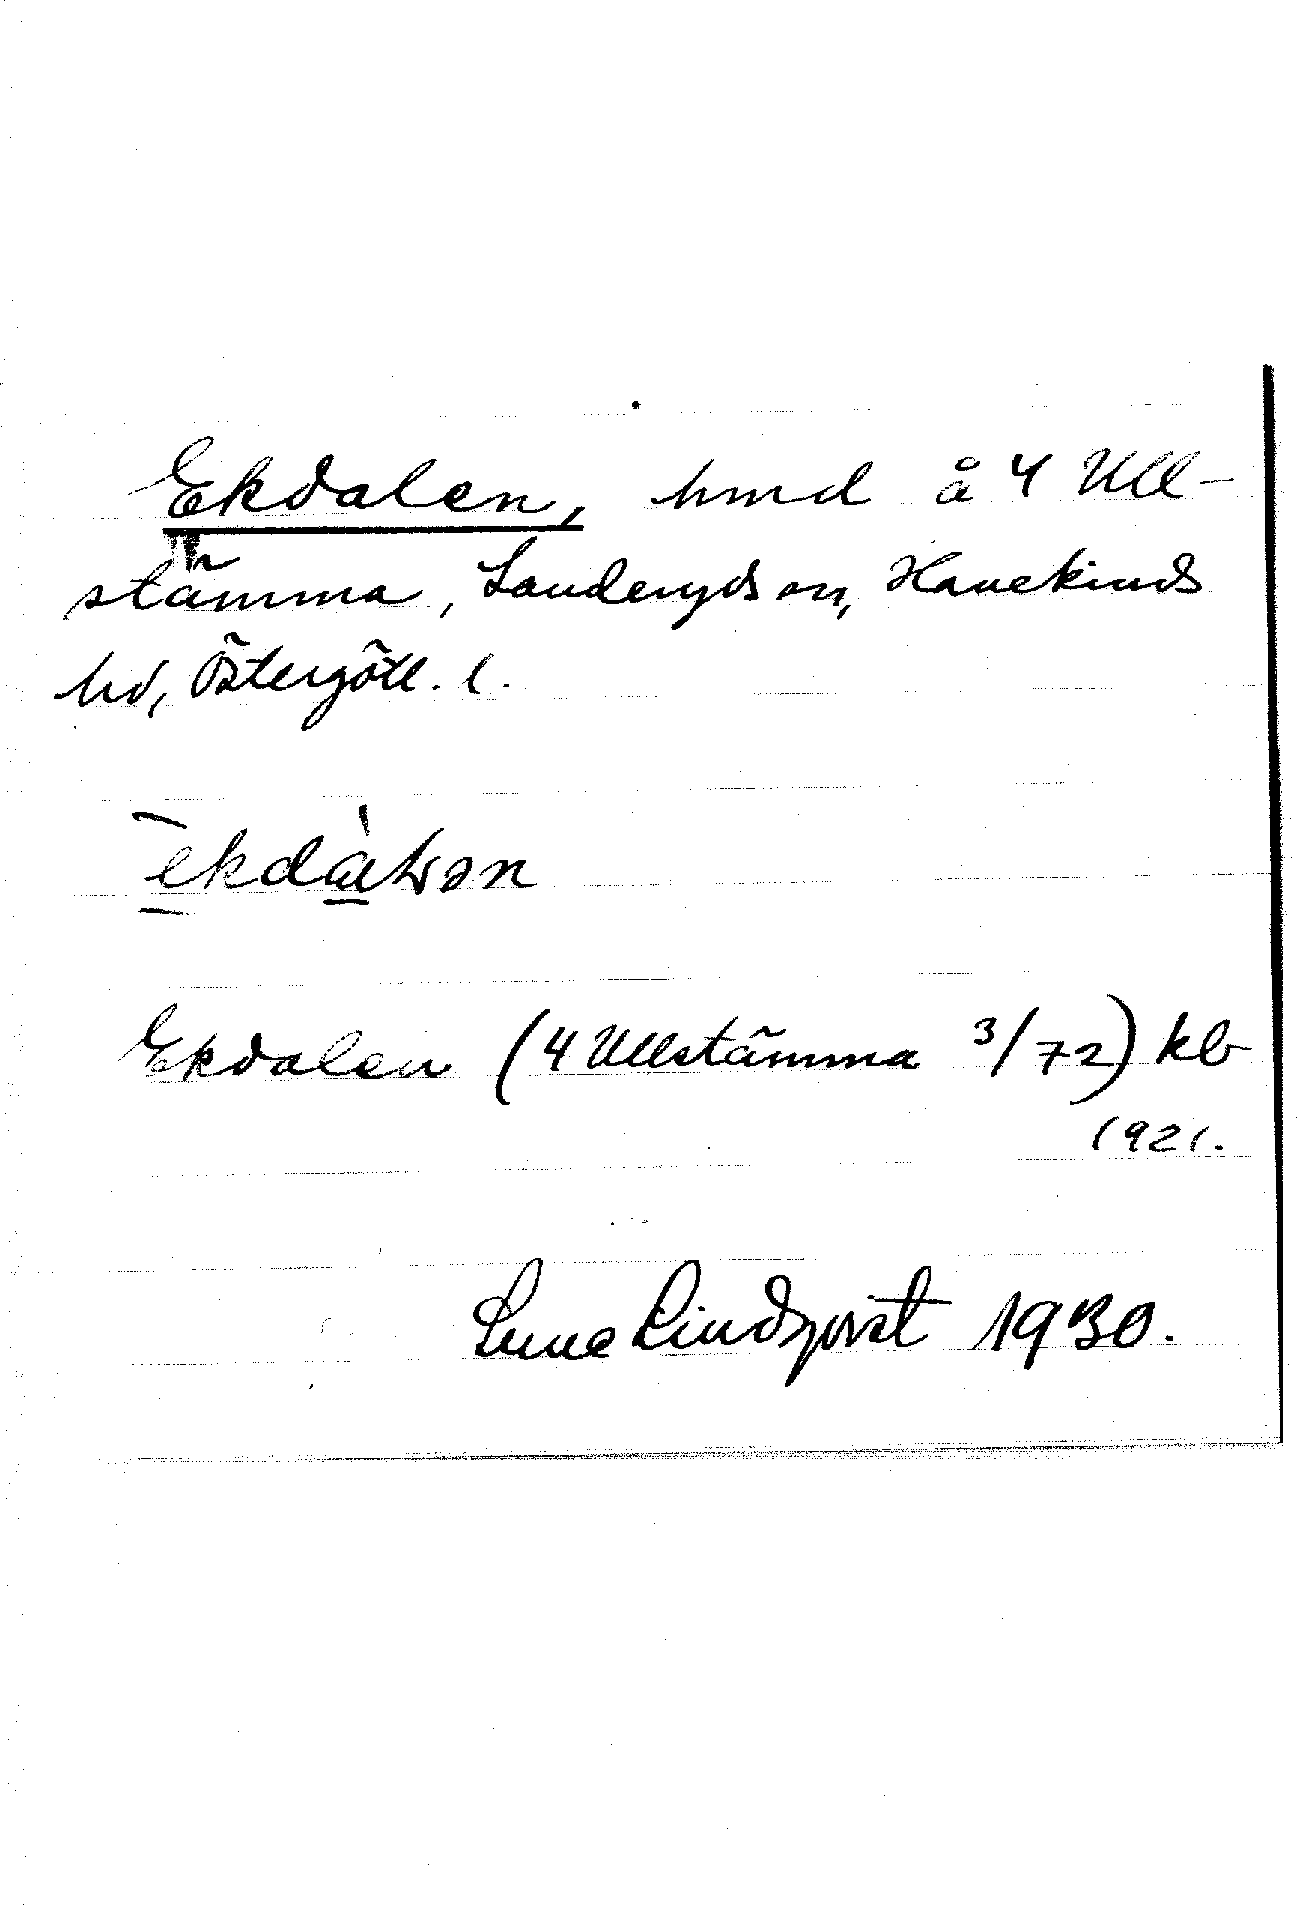 Ekdalen, hmd å 4 Ull-
stämma, Landeryds sn, Hanekinds
hd, Östergötl. l.
Ekdalen (4 Ullstämma 3/72) kb
1921.
Sune Lindqvist 1930.